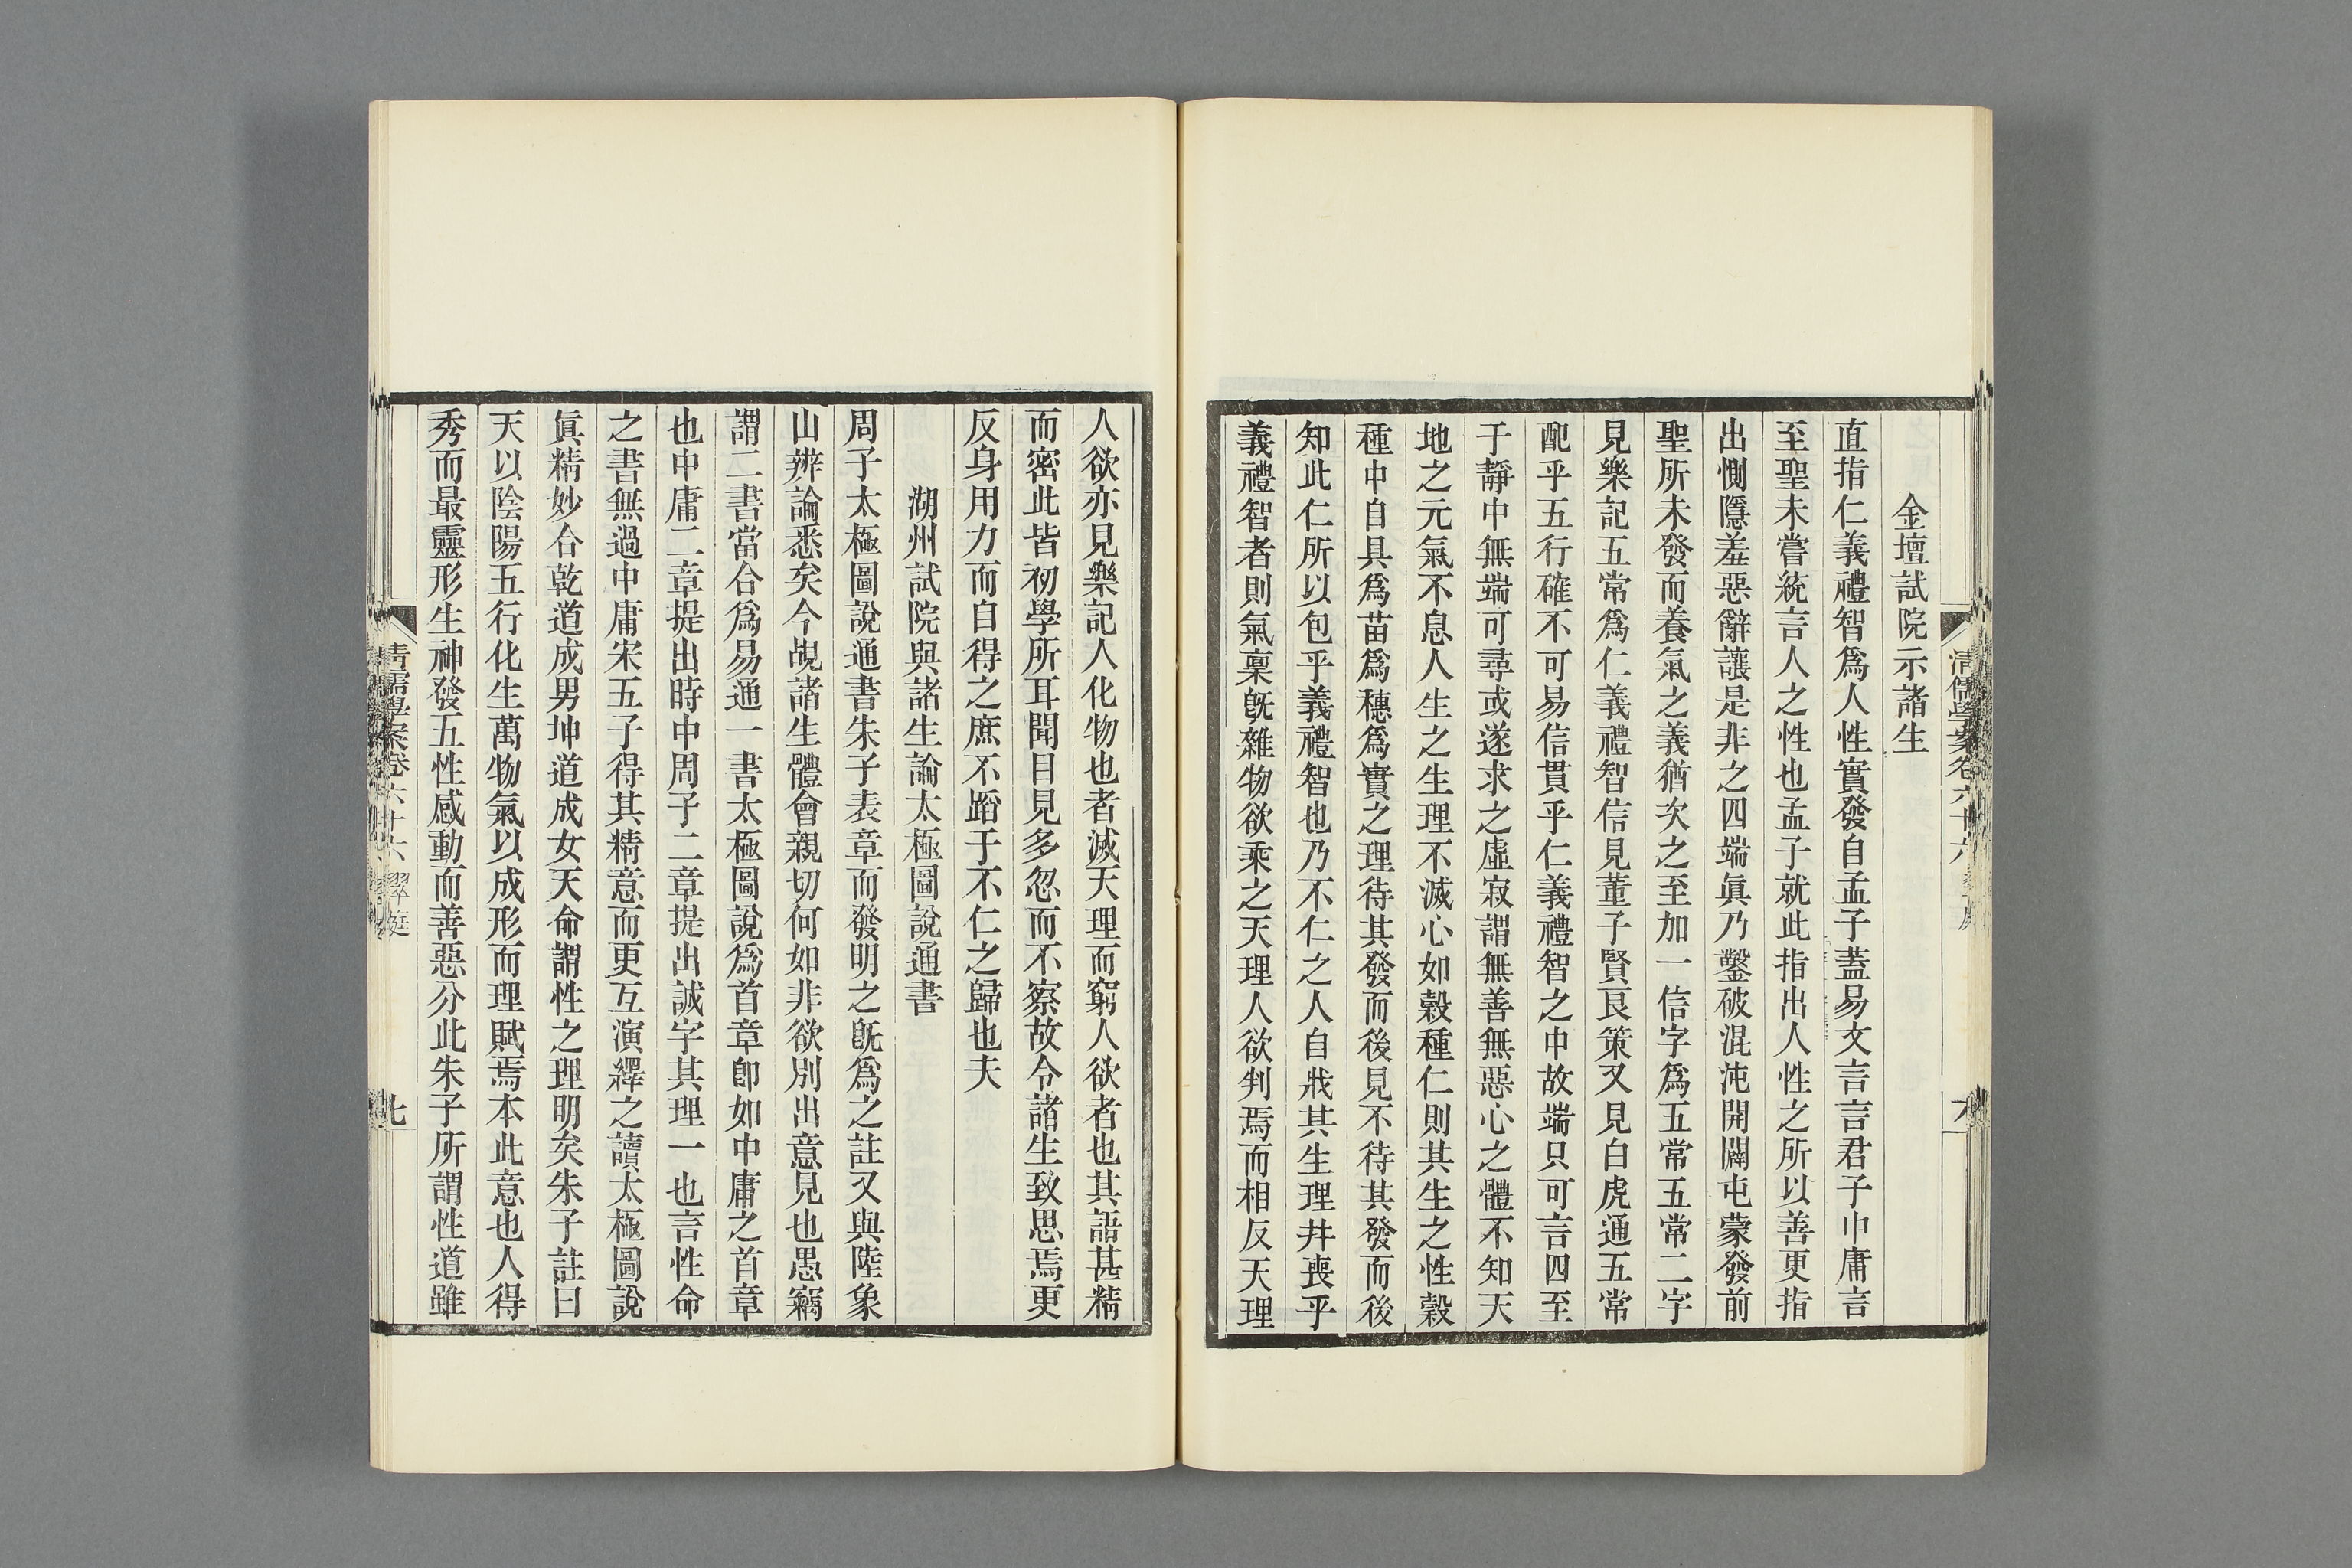 金壇試院示諸生
直指仁義禮智爲人性實發自孟子蓋易文言言君子中庸言
至聖未嘗統言人之性也孟子就此指出人性之所以善更指
出惻隱羞惡辭讓是非之四端眞乃鑿破混沌開闢屯蒙發前
聖所未發而養氣之義猶次之至加一信字爲五常五常二字
見樂記五常爲仁義禮智信見董子賢良策又見白虎通五常
配乎五行確不可易信貫乎仁義禮智之中故端只可言四至
于靜中無端可尋或遂求之虛寂謂無善無惡心之體不知天
地之元氣不息人生之生理不滅心如穀種仁則其生之性穀
種中自具爲苗爲穗爲實之理待其發而後見不待其發而後
知此仁所以包乎義禮智也乃不仁之人自戕其生理幷喪乎
義禮智者則氣稟旣雜物欲乘之天理人欲判焉而相反天理
清儒學案卷六十六
六
人欲亦見樂記人化物也者滅天理而窮人欲者也其語甚精
而密此皆初學所耳聞目見多忽而不察故令諸生致思焉更
反身用力而自得之庶不蹈于不仁之歸也夫
湖州試院與諸生論太極圖說通書
周子太極圖說通書朱子表章而發明之旣爲之註又與陸象
山辨論悉矣今覘諸生體會親切何如非欲別出意見也愚竊
謂二書當合爲易通一書太極圖說爲首章卽如中庸之首章
也中庸二章提出時中周子二章提出誠字其理一也言性命
之書無過中庸宋五子得其精意而更互演繹之讀太極圖說
眞精妙合乾道成男坤道成女天命謂性之理明矣朱子註曰
天以陰陽五行化生萬物氣以成形而理賦焉本此意也人得
秀而最靈形生神發五性感動而善惡分此朱子所謂性道雖
清儒學案卷六十六 翠庭
七